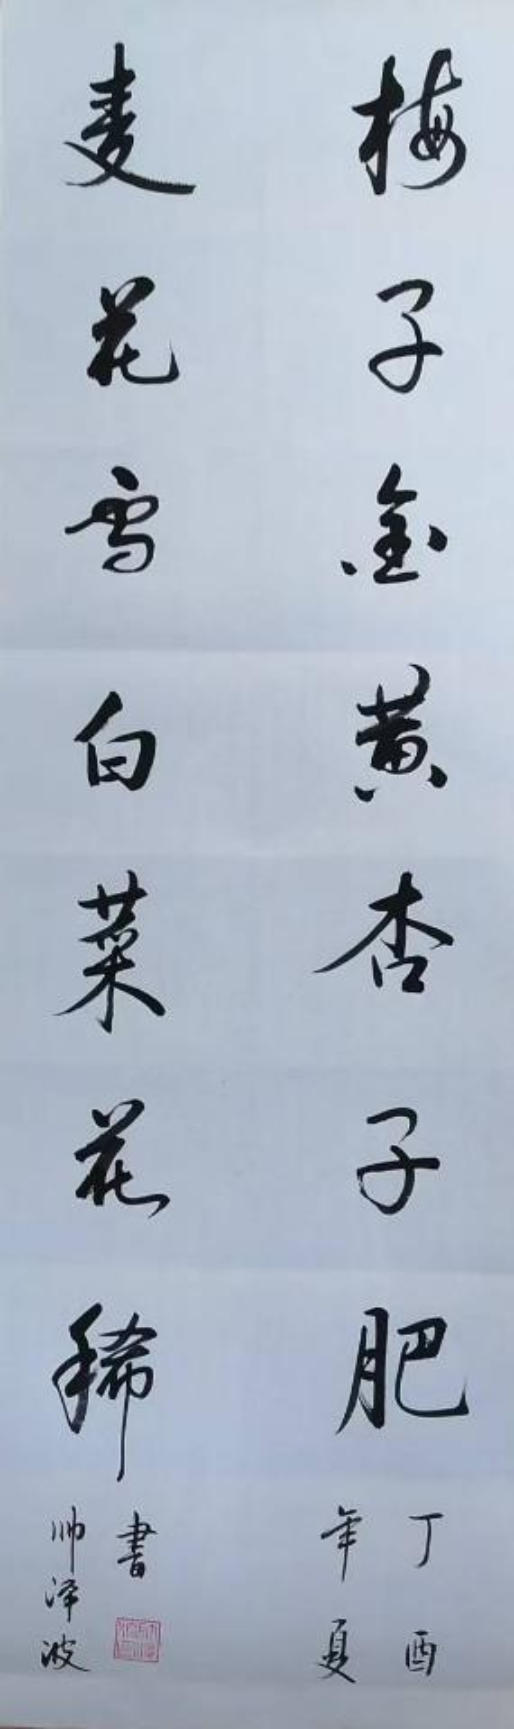 梅子金黄杏子肥
麦花雪白菜花稀
丁酉
年夏
書
帅泽波